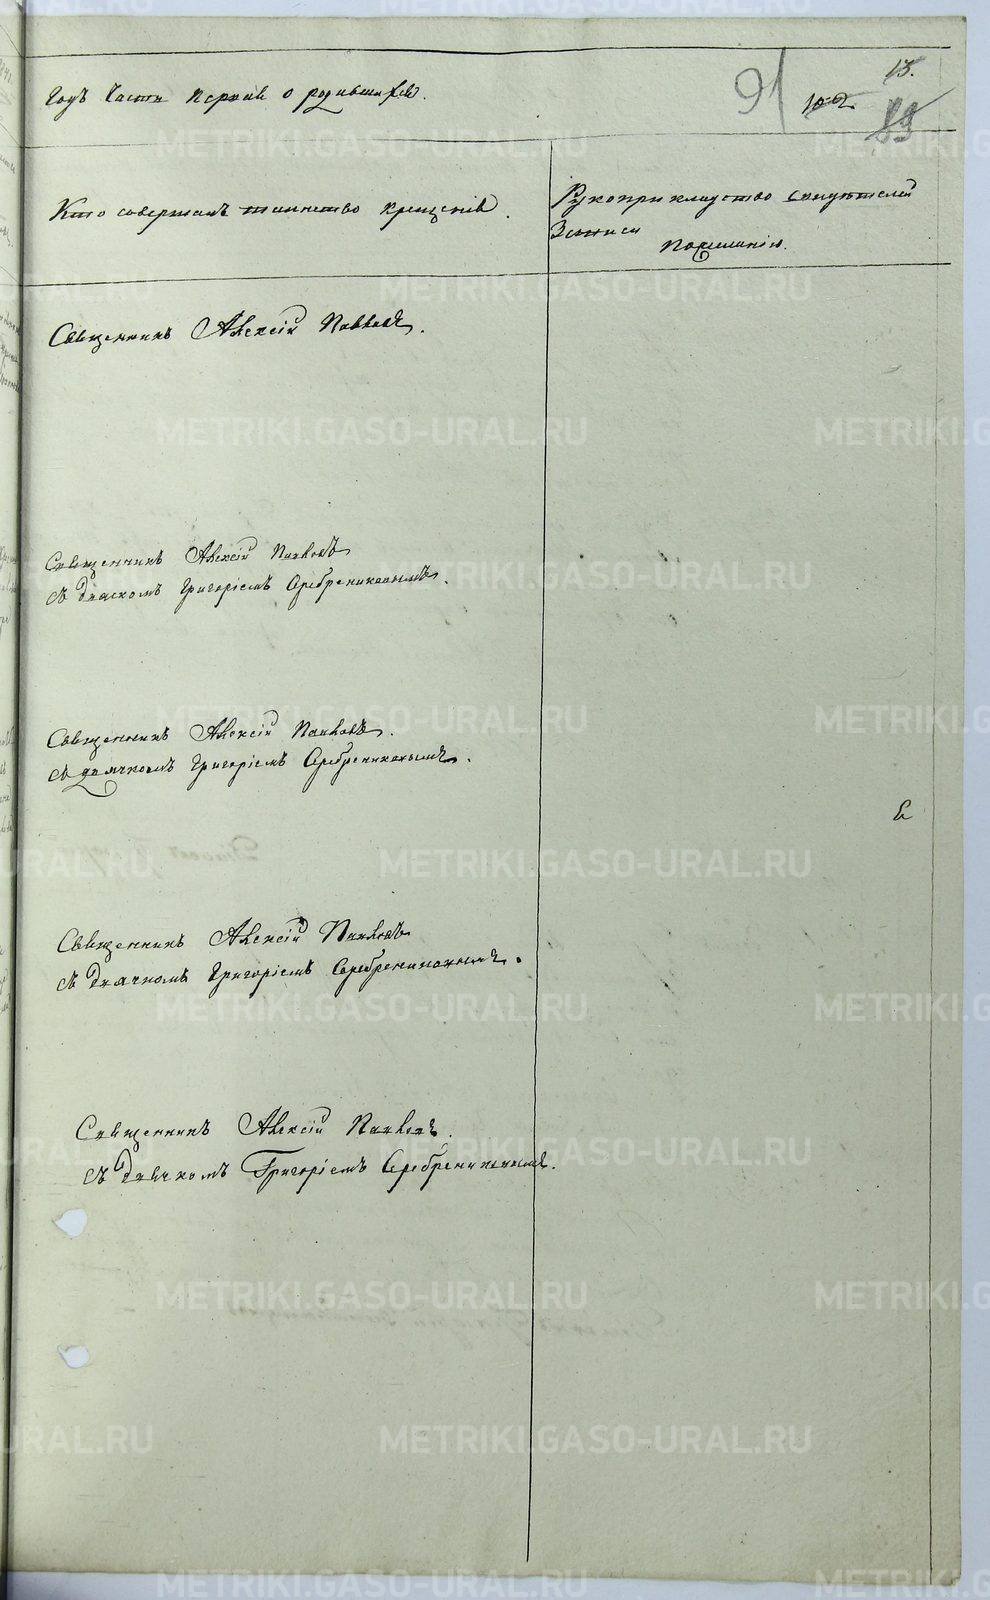 годъ Часть Первая о родившихся.
91
13.
102
89
Кто совершалъ таинство крещенія.
Рукоприкладство свидѣтелей
Записи
По желанію.
Священникъ Алексій Павловъ.
Священникъ Алексій Павловъ
съ дьячкомъ Григоріемъ Серебрениковымъ.
Священникъ Алексій Павловъ.
съ дьячкомъ Григоріемъ Серебрениковымъ.
Священникъ Алексій Павловъ
съ дьячкомъ Григоріемъ Серебрениковымъ.
Священникъ Алексій Павловъ.
съ дьячкомъ Григоріемъ Серебрениковымъ.
METRIKI.GASO-URAL.RU